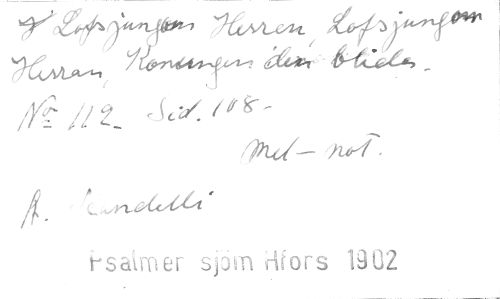 Lofsjungom Herren, Lofsjungom
Herran, Konungen den blide.
No 112. Sid. 108.
Mel-not.
A.
Psalmer sjöin Hfors 1902